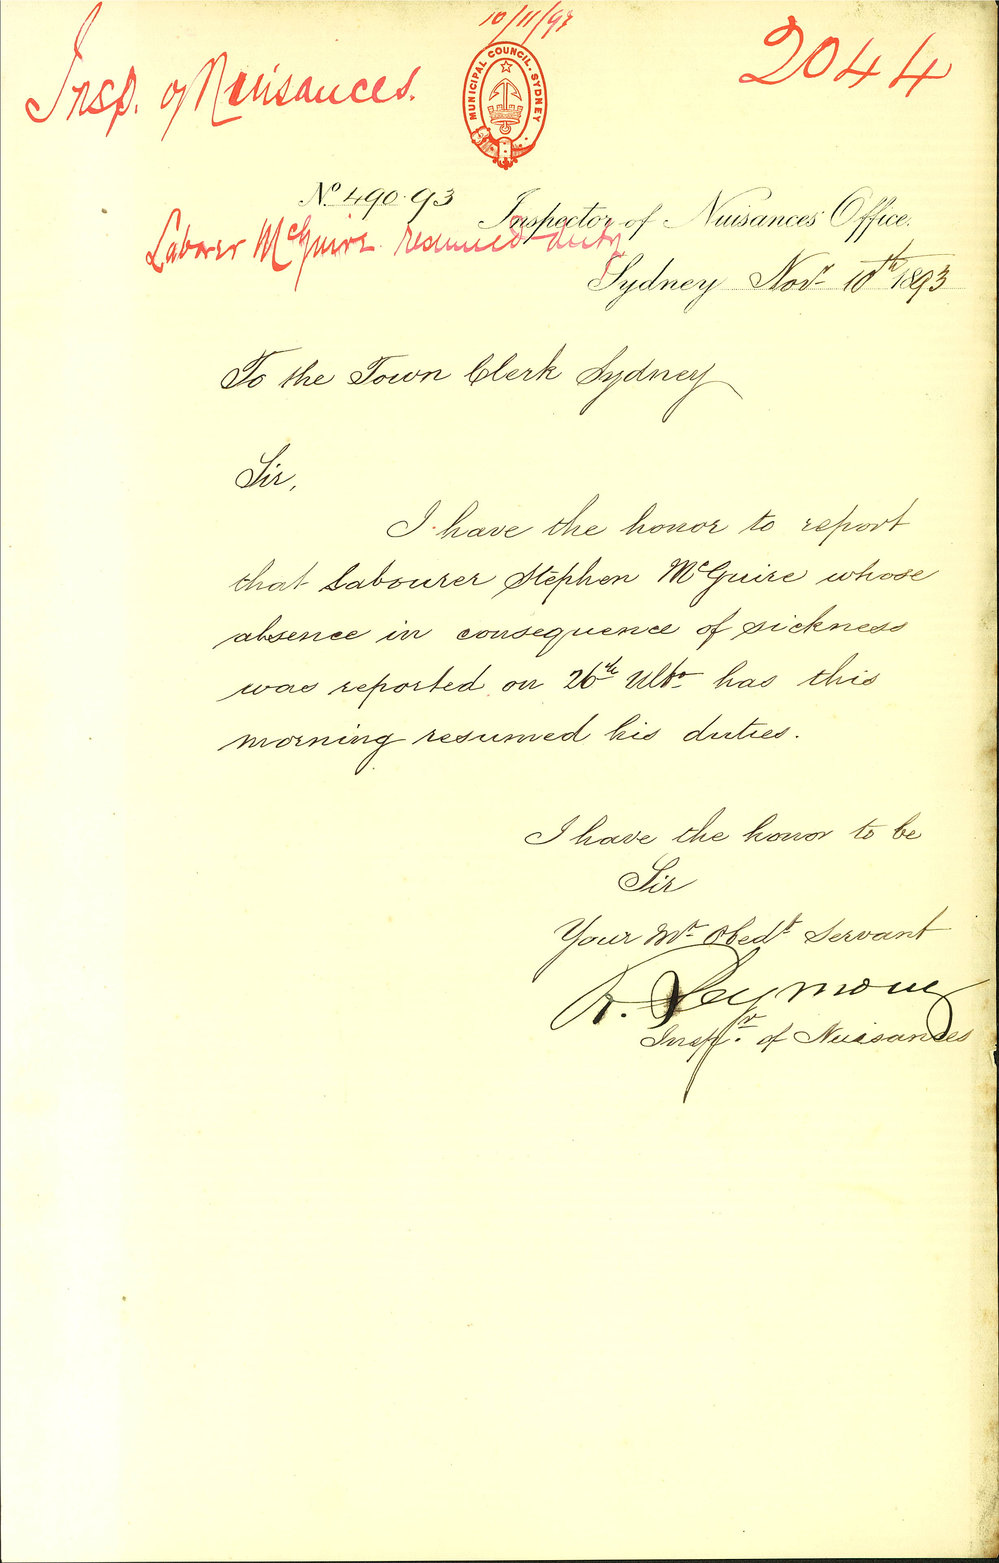 10/11/93
Insp. of Nuisances.
2044
MUNICIPAL COUNCIL. SYDNEY
No. 490.93
Inspector of Nuisances Office.
Laborer McGuire resumed duty
Sydney Novr 10th 1893
To the Town Clerk Sydney
Sir,
I have the honor to report
that Labourer Stephen McGuire whose
absence in consequence of sickness
was reported on 26th Ulto. has this
morning resumed his duties.
I have the honor to be
Sir
Your Mt. Obedt. Servant
R. Seymour
Inspr. of Nuisances